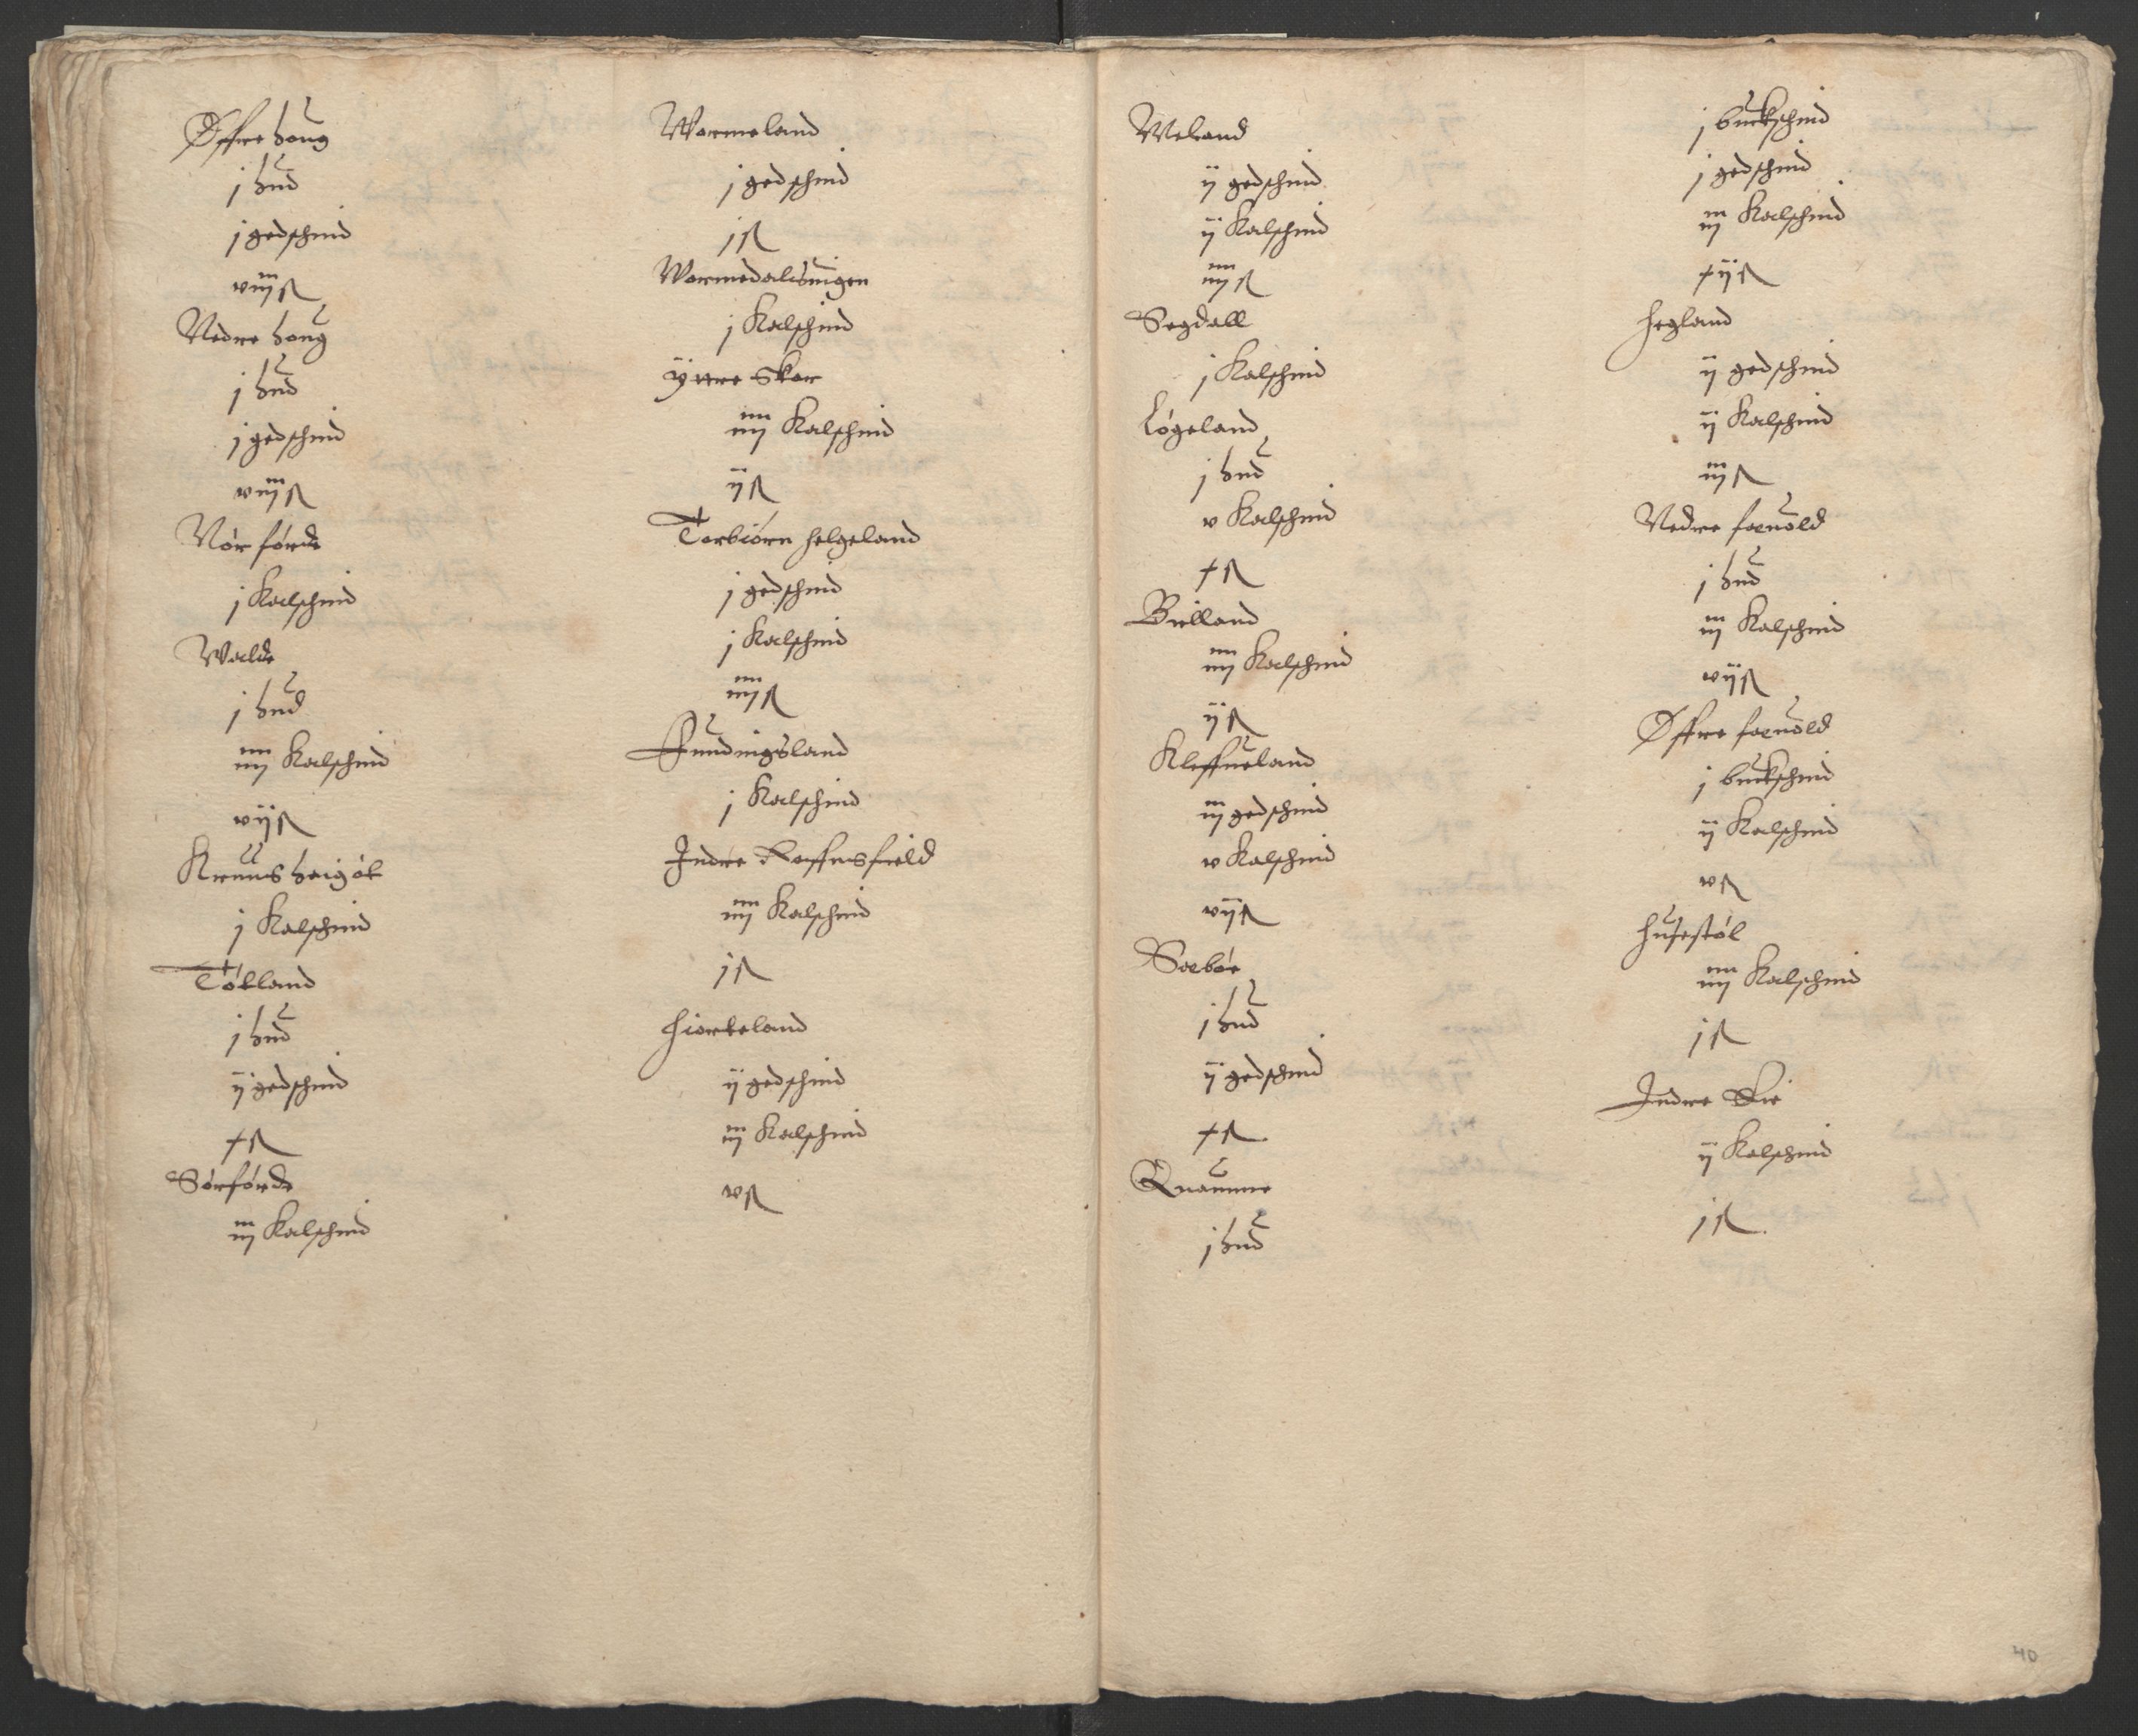 Øffre houg
j hud
j gedschind
viij ß
Nedre houg
j hud
j gedschind
viij ß
Nór fórde
j Kalschind
Walde
j hud
iiij Kalschind
vij ß
Kruus heigót
j Kalschind
Tótland
j hud
ij gedschind
x ß
Sórfórde
iij Kalschind
Wormeland
j gedschind
j ß
Wormedalsuigen
j Kalschind
ÿttre Skor
iiij Kalschind
ij ß
Torbiórn helgeland
j gedschind
j Kalschind
iiij ß
Fundingsland
j Kalschind
Indre
iiij Kalschind
j ß
Hiorteland
ij gedschind
iij Kalschind
v ß
Weland
ij gedschind
ij Kalschind
iiij ß
Segdall
j Kalschind
Lógeland
j hud
v Kalschind
x ß
Birlland
iiij Kalschind
ij ß
Kleffueland
iij gedschind
v Kalschind
vij ß
Saebór
j hud
ij gedschind
x ß
Quamme
j hud
j buckschind
j gedschind
iij Kalschind
xij ß
Hegland
ij gedschind
ij Kalschind
iij ß
Nedre faeuold
j hud
iij Kalschind
vij ß
Øffre faeuold
j buckschind
ij Kalschind
v ß
Husestól
iiij Kalschind
j ß
Indre
ij Kalschind
j ß
40